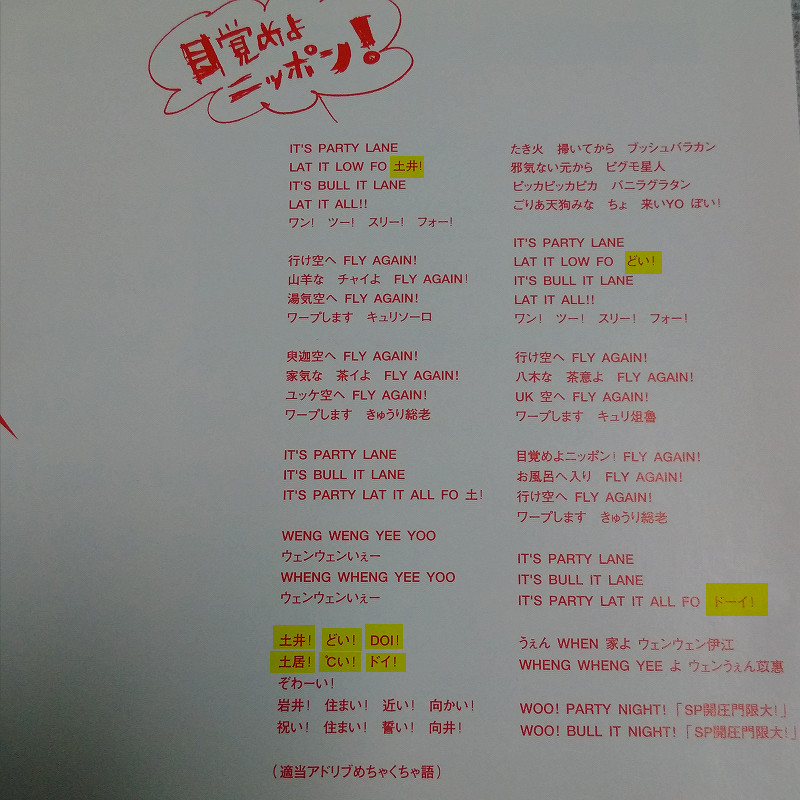 目覚めよ
ニッポン!
IT'S PARTY LANE
LAT IT LOW FO 土井!
IT'S BULL IT LANE
LAT IT ALL!!
ワン! ツー! スリー! フォー!
行け空へ FLY AGAIN!
山羊な チャイよ FLY AGAIN!
湯気空へ FLY AGAIN!
ワープします キュリソーロ
臾迦空へ FLY AGAIN!
家気な 茶イよ FLY AGAIN!
ユッケ空へ FLY AGAIN!
ワープします きゅうり総老
IT'S PARTY LANE
IT'S BULL IT LANE
IT'S PARTY LAT IT ALL FO 土!
WENG WENG YEE YOO
ウェンウェンいぇー
WHENG WHENG YEE YOO
ウェンウェンいぇー
土井! どい! DOI!
土居! ℃い! ドイ!
ぞわーい!
岩井! 住まい! 近い! 向かい!
祝い! 住まい! 誓い! 向井!
(適当アドリブめちゃくちゃ語)
たき火 掃いてから ブッシュバラカン
邪気ない元から ピグモ星人
ピッカピッカピカ バニラグラタン
ごりあ天狗みな ちょ 来いYO ぽい!
IT'S PARTY LANE
LAT IT LOW FO どい!
IT'S BULL IT LANE
LAT IT ALL!!
ワン! ツー! スリー! フォー!
行け空へ FLY AGAIN!
八木な 茶意よ FLY AGAIN!
UK 空へ FLY AGAIN!
ワープします キュリ俎魯
目覚めよニッポン! FLY AGAIN!
お風呂へ入り FLY AGAIN!
行け空へ FLY AGAIN!
ワープします きゅうり総老
IT'S PARTY LANE
IT'S BULL IT LANE
IT'S PARTY LAT IT ALL FO ドーイ!
うぇん WHEN 家よ ウェンウェン伊江
WHENG WHENG YEE よ ウェンうぇん苡惠
WOO! PARTY NIGHT!「SP開圧門限大!」
WOO! BULL IT NIGHT!「SP開圧門限大!」